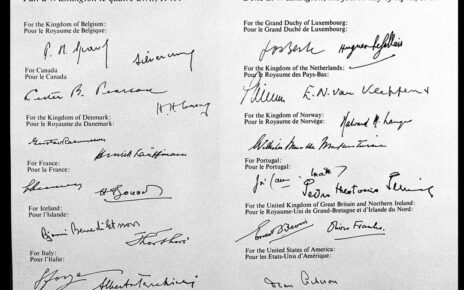 For the Kingdom of Belgium:
Pour le Royaume de Belgique:
For Canada
Pour le Canada
Lester B. Pearson
H H Wrong
For the Kingdom of Denmark:
Pour le Royaume du Danemark:
Gustav Rasmussen
Henrik Kauffmann
For France:
Pour la France:
Schuman
H Bonnet
For Iceland:
Pour l'Islande:
Bjarni Benediktsson
Thor Thors
For Italy:
Pour l'Italie:
Sforza
Alberto Tarchiani
For the Grand Duchy of Luxembourg:
Pour le Grand Duché de Luxembourg:
Jos Bech
Hugues Le Gallais
For the Kingdom of the Netherlands:
Pour le Royaume des Pays-Bas:
E. N. van Kleffens
For the Kingdom of Norway:
Pour le Royaume de Norvège:
Halvard M. Lange
Wilhelm Munthe Morgenstierne
For Portugal:
Pour le Portugal:
Pedro Theotonio Pereira
For the United Kingdom of Great Britain and Northern Ireland:
Pour le Royaume-Uni de Grande-Bretagne et d'Irlande du Nord:
Ernest Bevin
Oliver Franks
For the United States of America:
Pour les Etats-Unis d'Amérique:
Dean Acheson